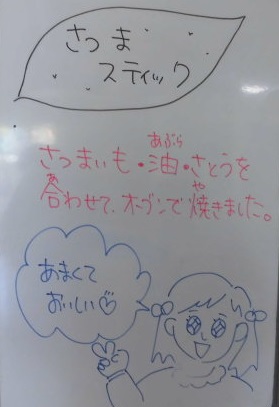 さつま
スティック
さつまいも・油・さとうを
あぶら
合わせて、オーブンで焼きました。
あ
や
あまくて
おいしい♡